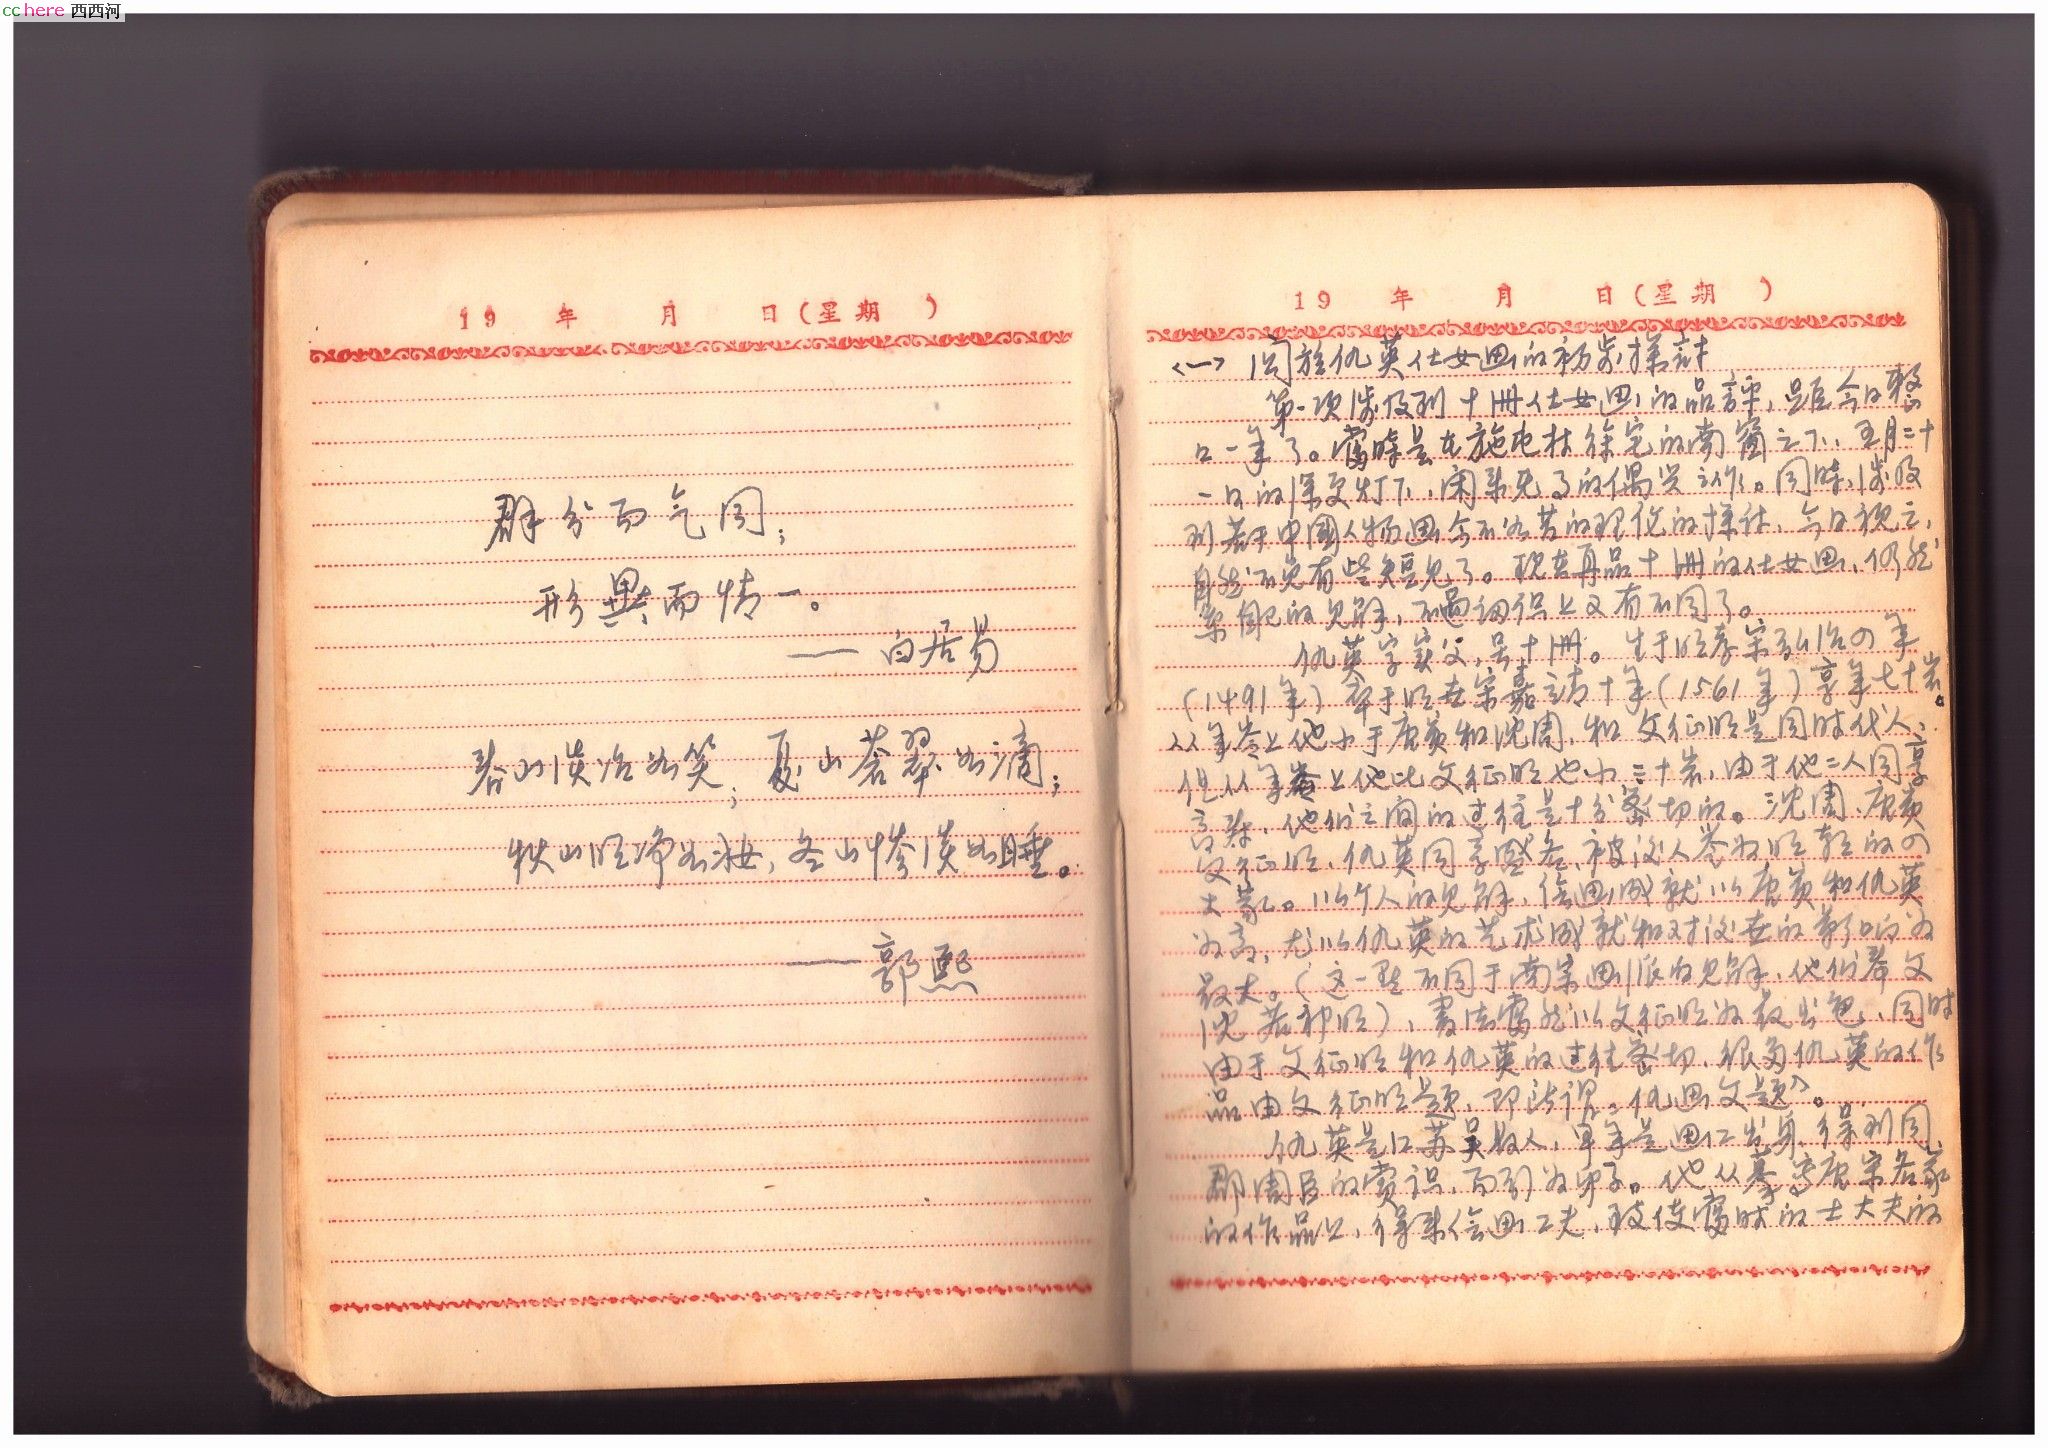 cchere 西西河
19 年 月 日(星期 )
群分而气同;
形異而情一。
—— 白居易
春山淡冶如笑;夏山蒼翠如滴;
秋山明净如妆,冬山惨淡如睡。
—— 郭熙
19 年 月 日(星期 )
<一> 関於仇英仕女画的初步探討
第一次涉及到十洲仕女画的品評,距今日整
一年了。當時是在施屯村徐宅的南窗之下,五月二十
一日的深更灯下,闲来无事的偶兴之作。同时,涉及
到若干中國人物画
的理论的探讨,今日视之,
自然不免有些短见了。现在再品十洲的仕女画,仍然
是自己的见解,不過认识上又有不同了。
仇英字實父,号十洲。生于明孝宗弘治四年
(1491年)卒于明世宗嘉靖十年(1561年)享年七十岁。
从年岁上他小于唐寅和沈周,和文征明是同时代人,
但从年岁上他比文征明也小二十岁,由于他二人同享
高寿,他们之间的过往是十分密切的。沈周、唐寅
文征明、仇英同享盛名,被后人誉为明朝的四
大家。以个人的见解,绘画成就以唐寅和仇英
为高,尤以仇英的艺术成就和对后世的影响为
最大。(这一點不同于南宗画派的见解,他们奉文
沈若神明),書法當然以文征明为最出色,同时
由于文征明和仇英的过往密切,很多仇英的作
品由文征明題,即所谓“仇画文題”。
仇英是江苏吴县人,早年是画工出身,得到同
郡周臣的赏识,而引为弟子。他从摹写唐宋名家
的作品上,得来绘画工夫,致使當时的士大夫的